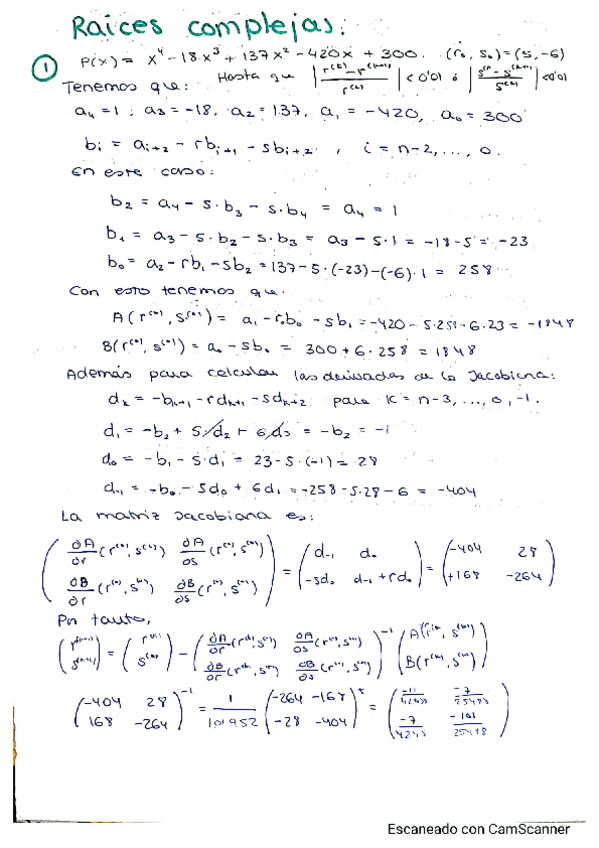 Raices complejas:
① P(x) = x⁴ - 18x³ + 137x² - 420x + 300. (r₀, s₀) = (5, -6)
Tenemos que: Hasta que |r⁽ᵏ⁾ - r⁽ᵏ⁻¹⁾ / r⁽ᵏ⁾| < 0'01 ó <0'01
a₄ = 1 ; a₃ = -18, a₂ = 137, a₁ = -420, a₀ = 300
bᵢ = aᵢ₊₂ - rbᵢ₊₁ - sbᵢ₊₂ , i = n-2, ..., 0.
En este caso:
b₂ = a₄ - 5·b₃ - s·b₄ = a₄ = 1
b₁ = a₃ - 5·b₂ - s·b₃ = a₃ - 5·1 = -18 - 5 = -23
b₀ = a₂ - rb₁ - sb₂ = 137 - 5·(-23) - (-6)·1 = 258
Con esto tenemos que:
A(r⁽ᵏ⁾, s⁽ᵏ⁾) = a₁ - r₀b₀ - sb₁ = -420 - 5·258 - 6·23 = -1848
B(r⁽ᵏ⁾, s⁽ᵏ⁾) = a₀ - sb₀ = 300 + 6·258 = 1848
Además para calcular las derivadas de la Jacobiana:
dₖ = -bₖ₊₁ - rdₖ₊₁ - sdₖ₊₂ para k = n-3, ..., 0, -1.
d₁ = -b₂ + 5d₂ + 6d₃ = -b₂ = -1
d₀ = -b₁ - 5·d₁ = 23 - 5·(-1) = 28
d₋₁ = -b₀ - 5d₀ + 6d₁ = -258 - 5·28 - 6 = -404
La matriz Jacobiana es:
(∂A/∂r (r⁽ᵏ⁾, s⁽ᵏ⁾) ∂A/∂s (r⁽ᵏ⁾, s⁽ᵏ⁾)) = (d₋₁ d₀) = (-404 28)
(∂B/∂r (r⁽ᵏ⁾, s⁽ᵏ⁾) ∂B/∂s (r⁽ᵏ⁾, s⁽ᵏ⁾)) (-sd₀ d₋₁ + rd₀) (+168 -264)
Por tanto,
(r⁽ᵏ⁺¹⁾) = (r⁽ᵏ⁾) - (∂A/∂r (r⁽ᵏ⁾, s⁽ᵏ⁾) ∂A/∂s (r⁽ᵏ⁾, s⁽ᵏ⁾))⁻¹ (A(r⁽ᵏ⁾, s⁽ᵏ⁾))
(s⁽ᵏ⁺¹⁾) (s⁽ᵏ⁾) (∂B/∂r (r⁽ᵏ⁾, s⁽ᵏ⁾) ∂B/∂s (r⁽ᵏ⁾, s⁽ᵏ⁾)) (B(r⁽ᵏ⁾, s⁽ᵏ⁾))
(-404 28)⁻¹ = 1/101952 (-264 -168)ᵗ = (-11/4248 -7/25488)
(168 -264) (-28 -404) (-7/4248 -101/25488)
Escaneado con CamScanner